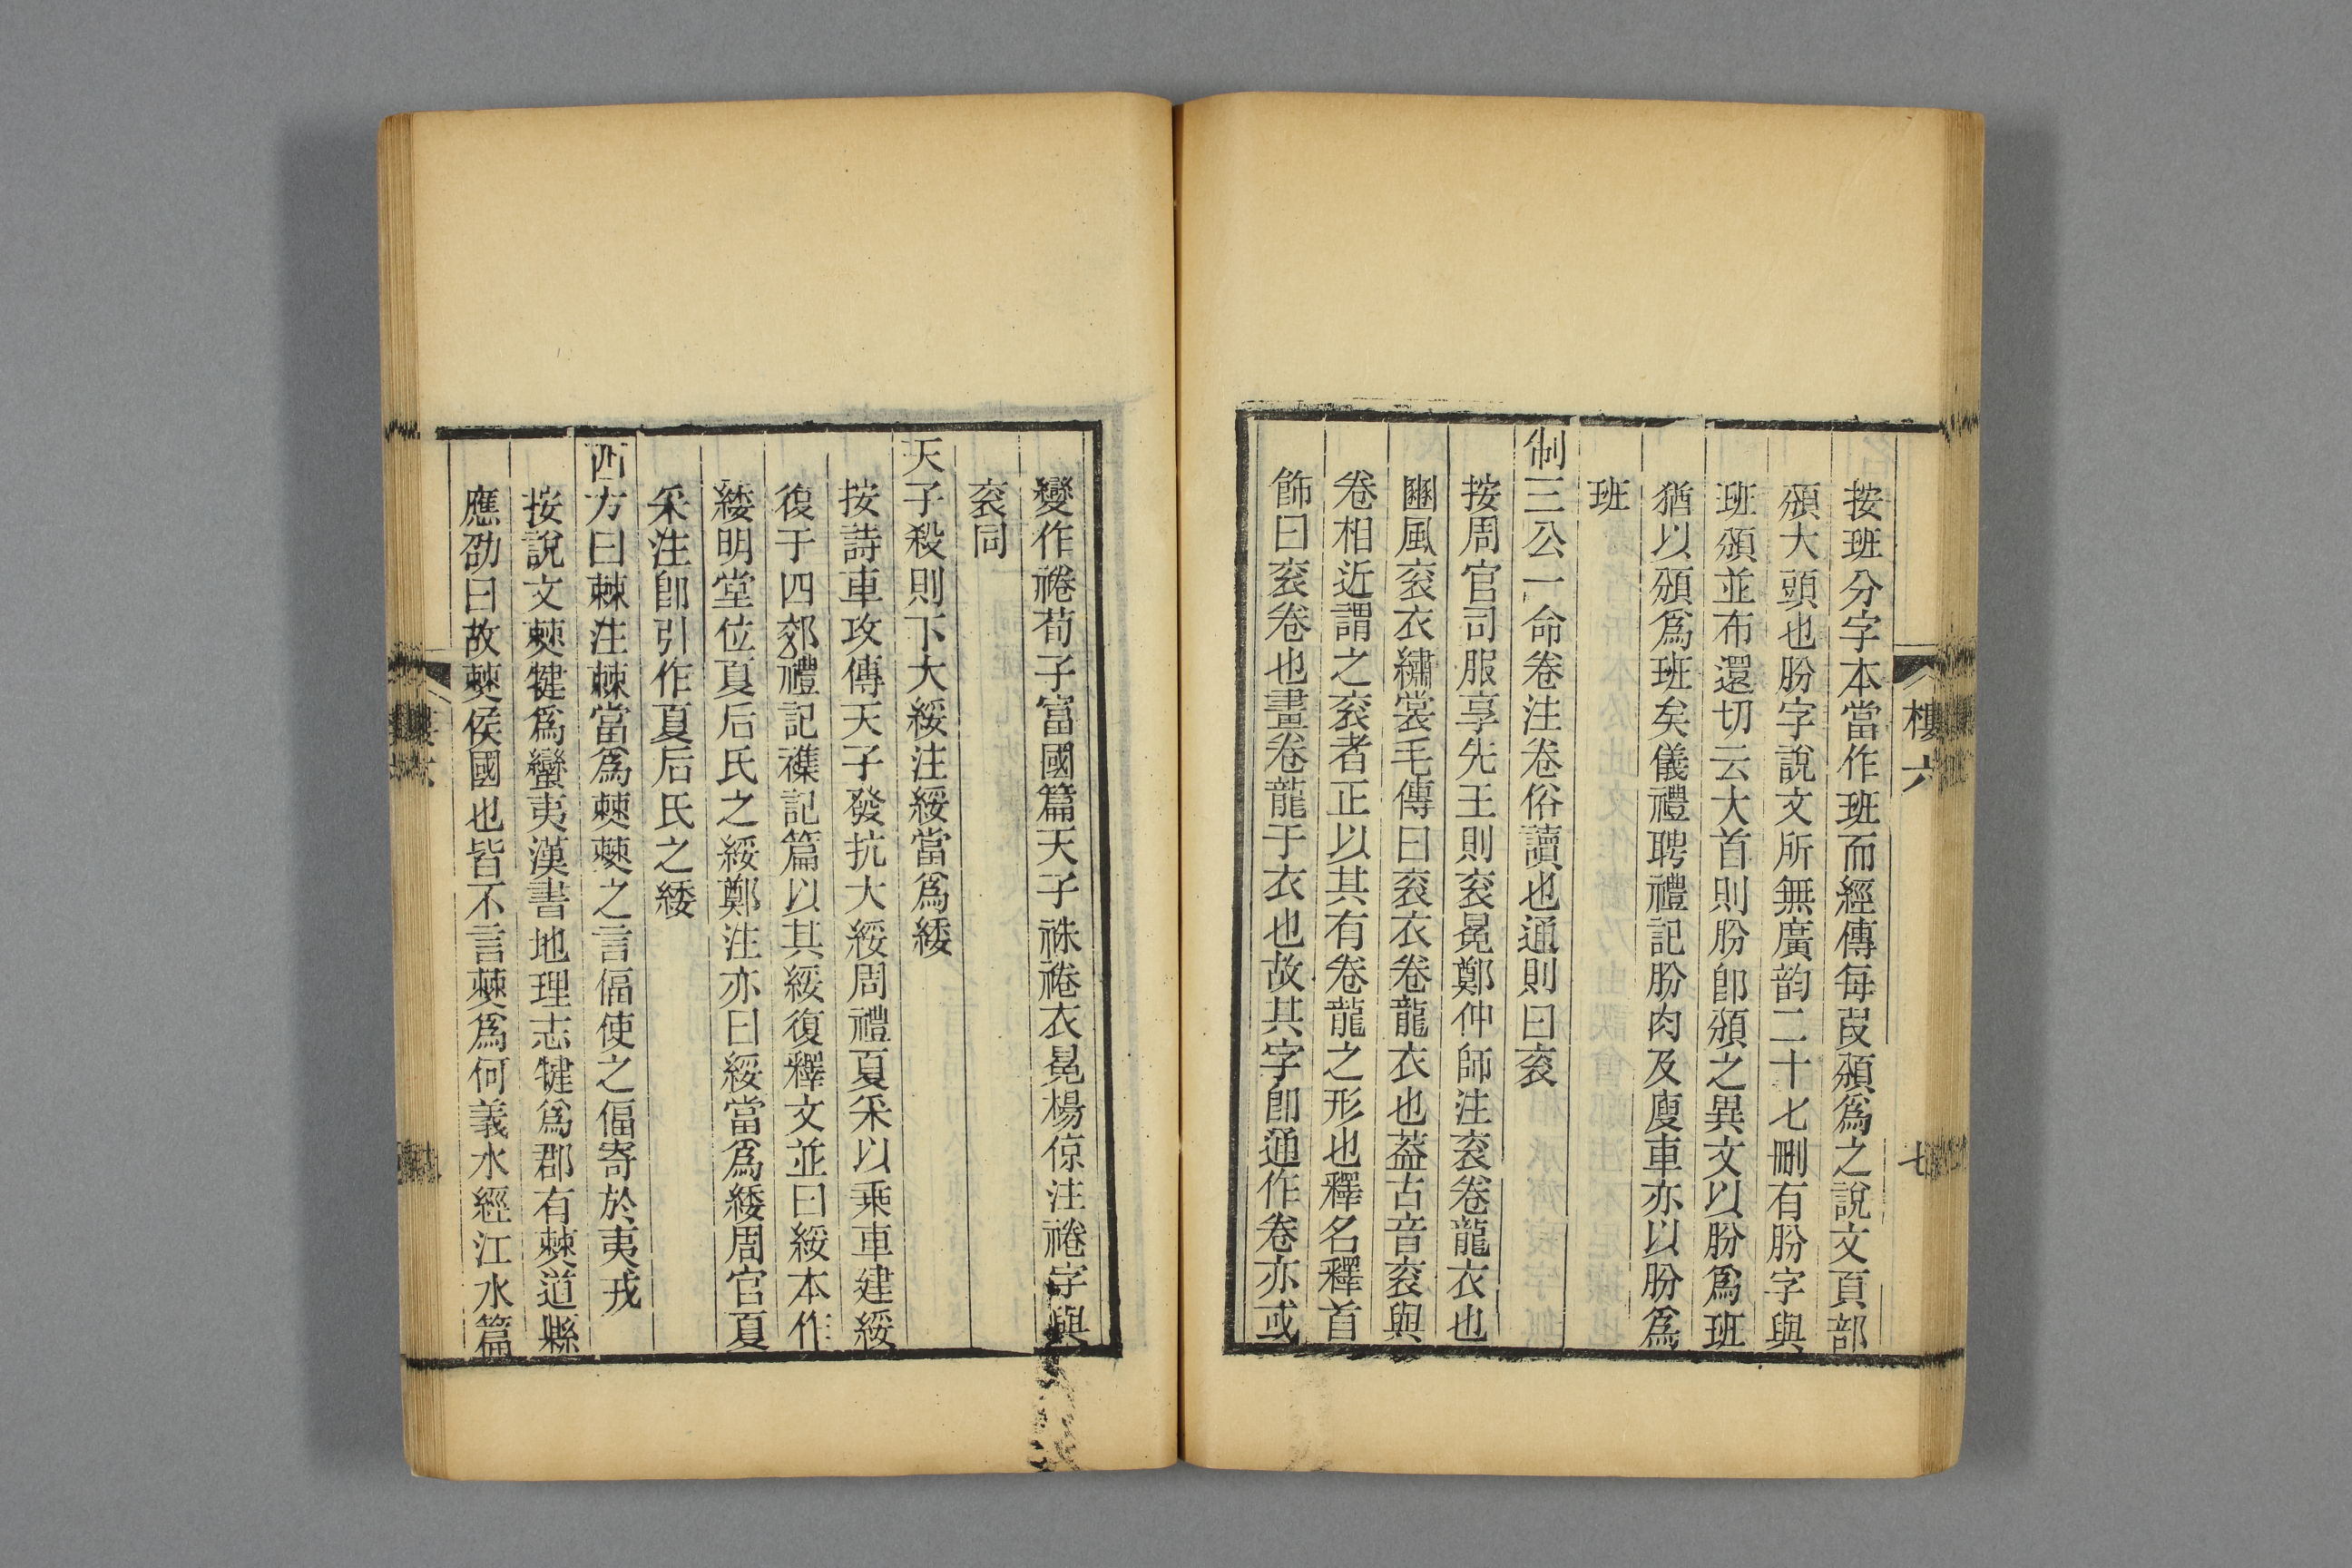 按班分字本當作班而經傳每叚頒爲之說文頁部
頒大頭也朌字說文所無廣韵二十七刪有朌字與
班頒並布還切云大首則朌卽頒之異文以朌爲班
猶以頒爲班矣儀禮聘禮記朌肉及廋車亦以朌爲
班
制三公一命卷注卷俗讀也通則曰衮
按周官司服享先王則衮冕鄭仲師注衮卷龍衣也
豳風衮衣繡裳毛傳曰衮衣卷龍衣也葢古音衮與
卷相近謂之衮者正以其有卷龍之形也釋名釋首
飾曰衮卷也畫卷龍于衣也故其字卽通作卷亦或
樓六
七
變作裷荀子富國篇天子袾裷衣冕楊倞注裷字與
衮同
天子殺則下大綏注綏當爲緌
按詩車攻傳天子發抗大綏周禮夏采以乘車建綏
復于四郊禮記襍記篇以其綏復釋文並曰綏本作
緌明堂位夏后氏之綏鄭注亦曰綏當爲緌周官夏
采注卽引作夏后氏之緌
西方曰棘注棘當爲僰僰之言偪使之偪寄於夷戎
按說文僰犍爲蠻夷漢書地理志犍爲郡有僰道縣
應劭曰故僰侯國也皆不言僰爲何義水經江水篇